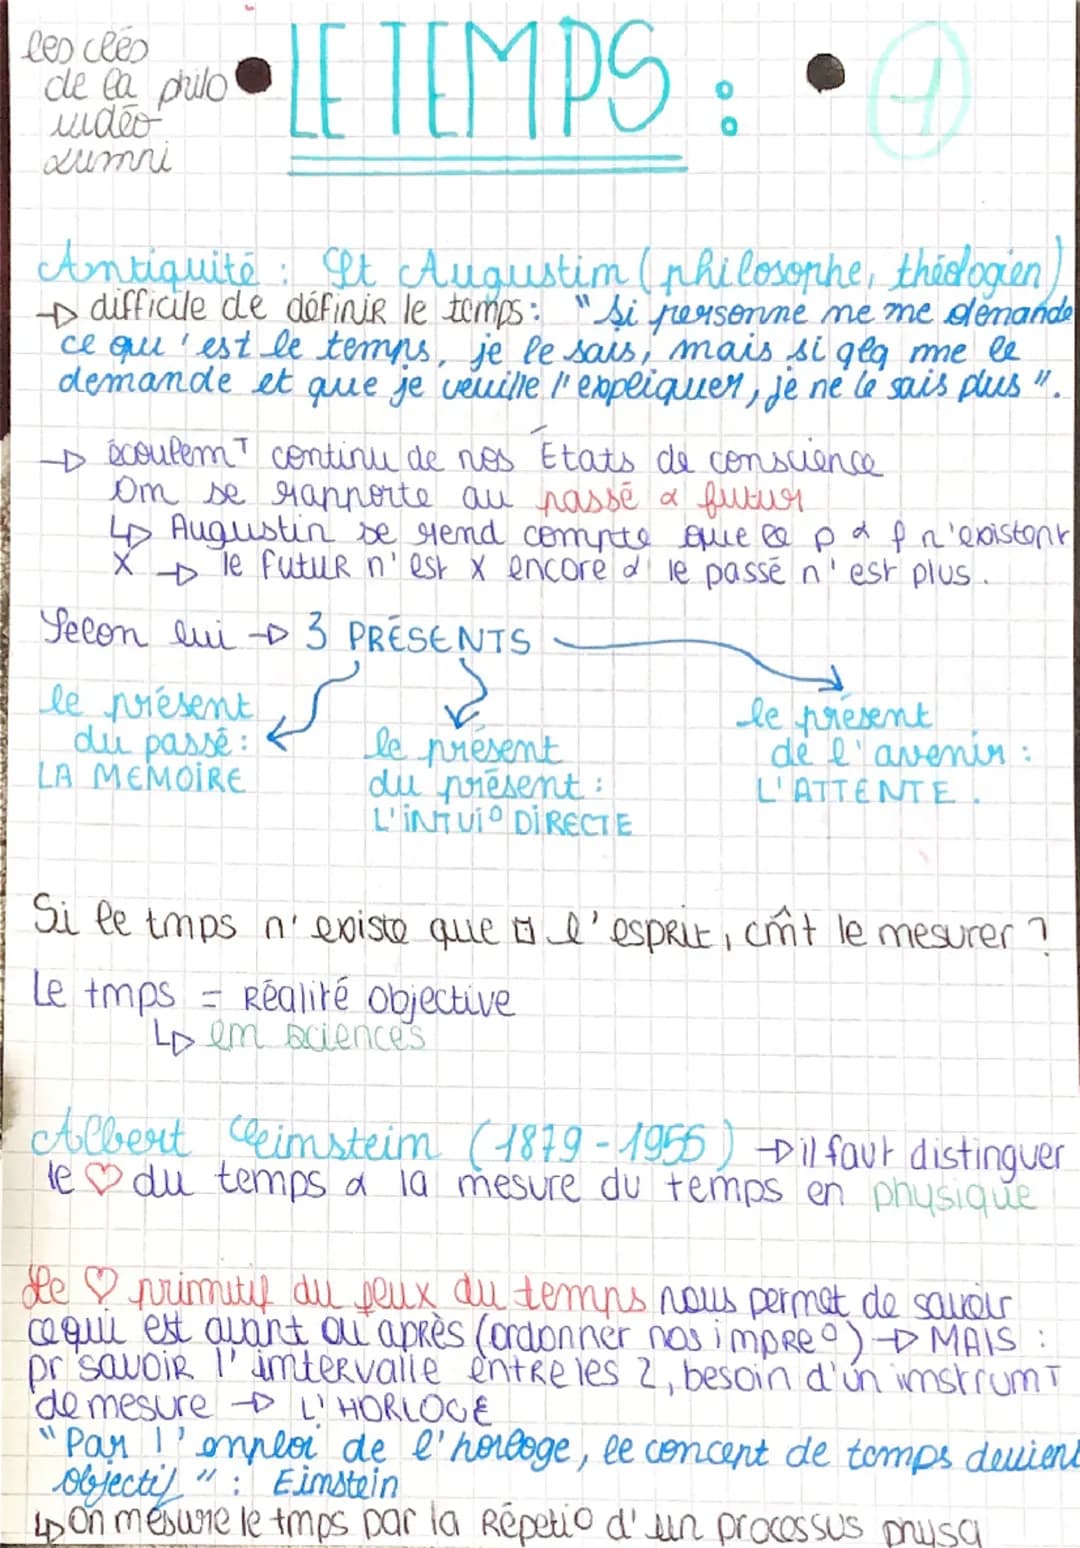 les clés
de la philo
vidéo
Lumni
LE TEMPS :
1
Antiquité : St Augustin (philosophe, théologien)
→ difficile de définir le temps : "si personne ne me demande
ce qu'est le temps, je le sais, mais si qlq me le
demande et que je veuille l'expliquer, je ne le sais plus".
→ écoulemT continu de nos États de conscience
On se rapporte au passé & futur
↳ Augustin se rend compte que le p & f n'existent
X → le futur n'est X encore & le passé n'est plus.
Selon lui → 3 PRÉSENTS
le présent
du passé :
LA MÉMOIRE
le présent
du présent :
L'INTUI° DIRECTE
le présent
de l'avenir :
L'ATTENTE.
Si le tmps n'existe que l'esprit, cmt le mesurer ?
Le tmps = Réalité objective
↳ en sciences
Albert Einstein (1879-1955) → il faut distinguer
le ♡ du temps & la mesure du temps en physique
Le ♡ primitif du feux du temps nous permet de savoir
ce qui est avant ou après (ordonner nos impre°) → MAIS :
pr savoir l'intervalle entre les 2, besoin d'un instrumT
de mesure → L'HORLOGE
"Par l'emploi de l'horloge, le concept de temps devient
objectif" : Einstein
↳ On mesure le tmps par la Répétio d'un processus